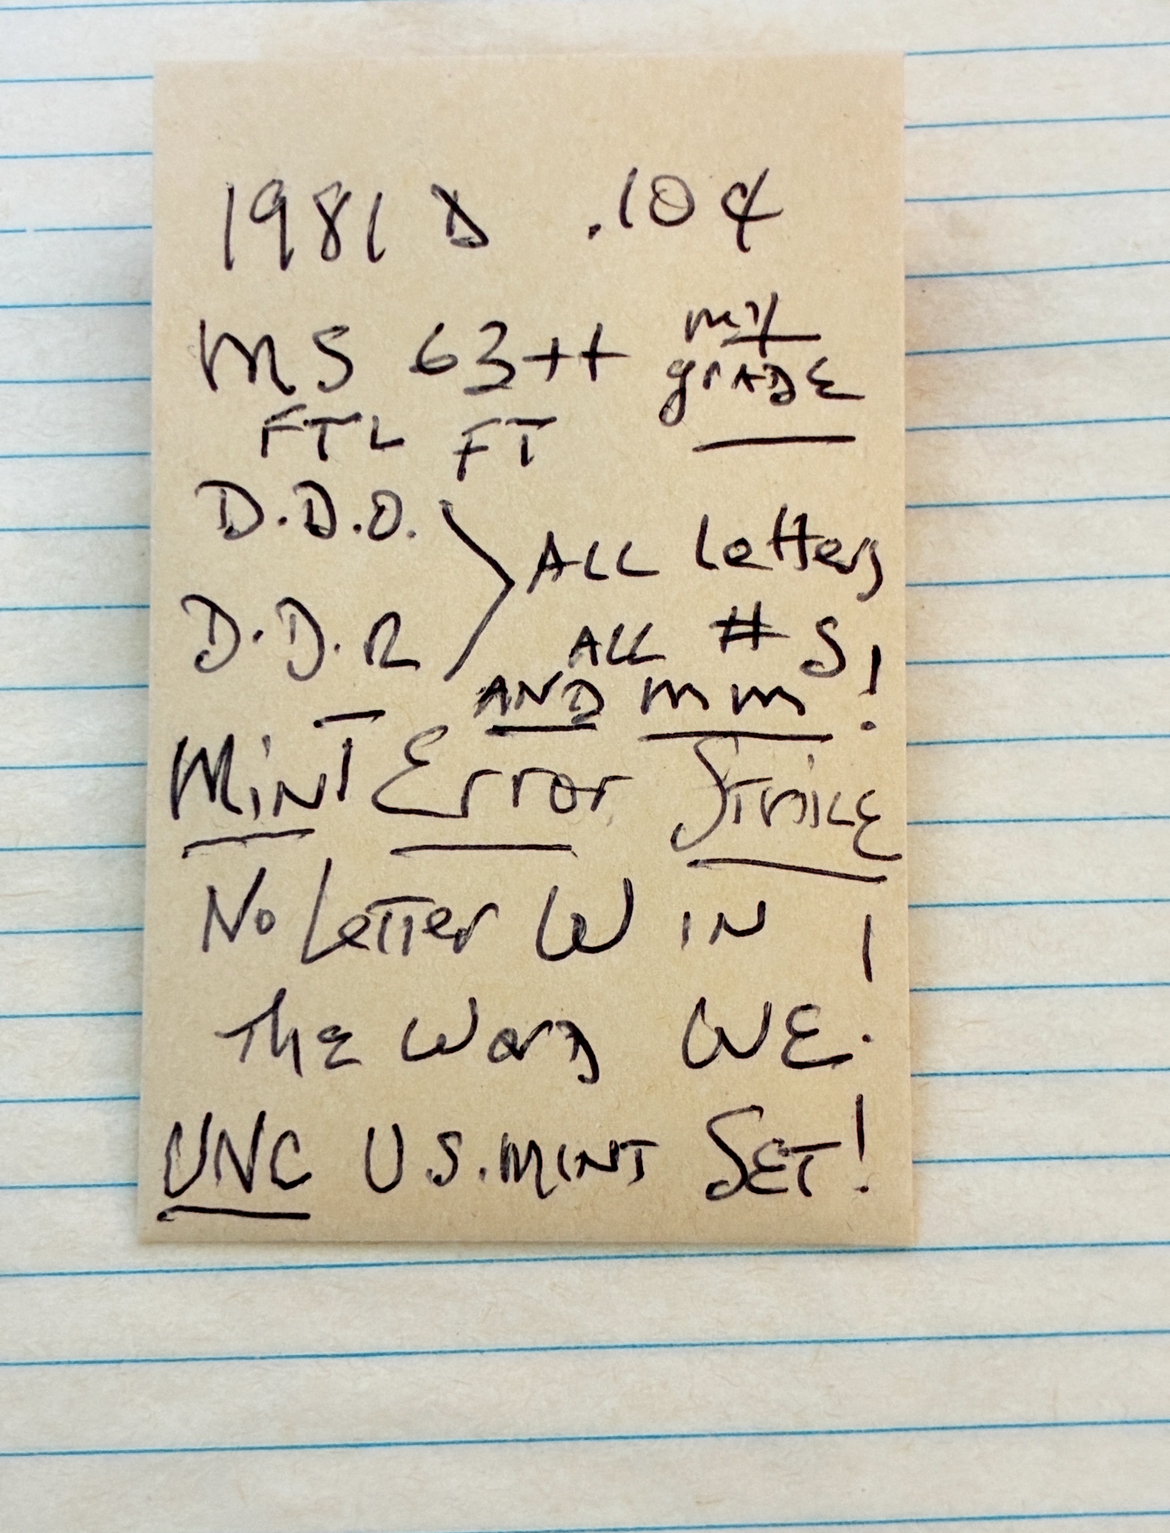 1981 D .10¢
MS 63++ my
grADE
FTL FT
D.D.O.
ALL Letters
D.D.R
ALL # S!
AND mm
MiNT Error STriKE
No LeTTer W IN
The WorD WE!
UNC U.S. MINT SET!